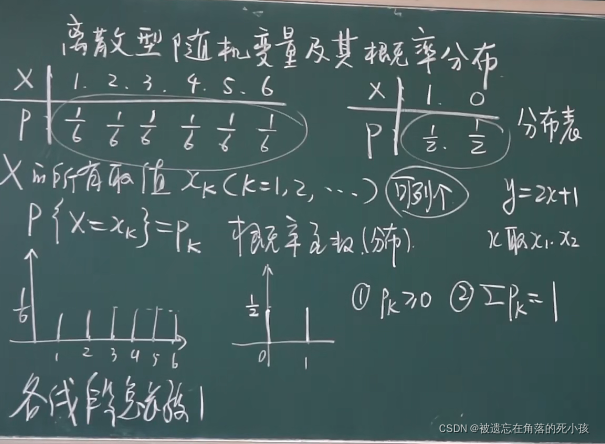 离散型随机变量及其概率分布
X 1. 2. 3. 4. 5. 6
P 1/6 1/6 1/6 1/6 1/6 1/6
X 1. 0
P 1/2. 1/2
分布表
X的所有取值 xₖ(k=1,2,…) 可列个
y=2x+1
x取x₁.x₂
P{X=xₖ}=pₖ 概率函数(分布)
① pₖ≥0 ② Σpₖ=1
1/6
1 2 3 4 5 6
1/2
0 1
各线段总长度1
CSDN @被遗忘在角落的死小孩